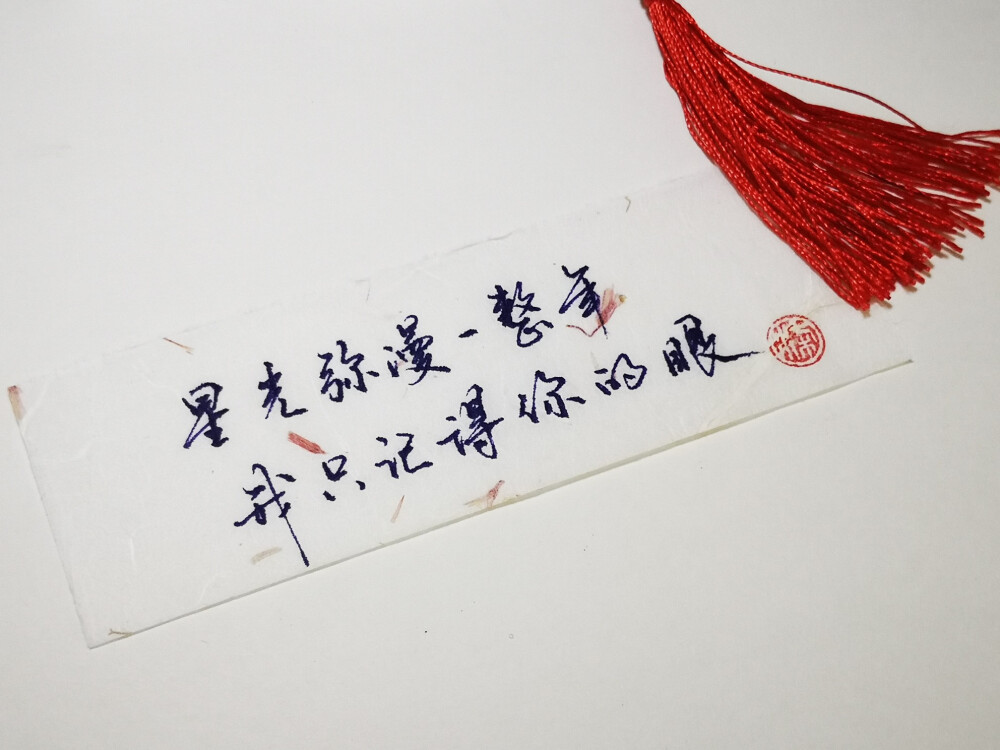 星光弥漫一整年
我只记得你的眼